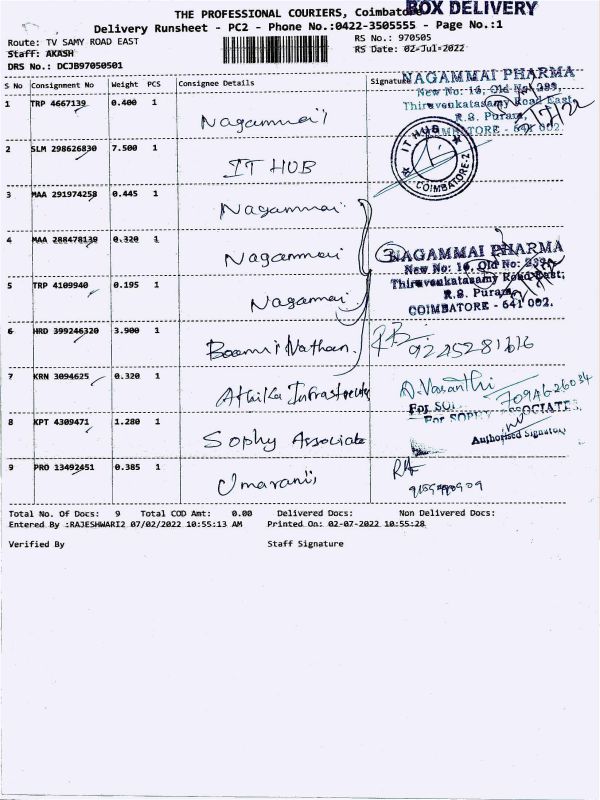 THE PROFESSIONAL COURIERS, Coimbatore
BOX DELIVERY
Delivery Runsheet - PC2 - Phone No.:0422-3505555 - Page No.:1
Route: TV SAMY ROAD EAST
RS No.: 970505
Staff: AKASH
RS Date: 02-Jul-2022
DRS No.: DCJB97050501
S No Consignment No Weight PCS Consignee Details Signature
NAGAMMAI PHARMA
New No: 16, Old No: 289,
Thiruvenkatasamy Road East,
R.S. Puram,
COIMBATORE - 641 002.
1 TRP 4667139 0.400 1 Nagammai
2 SLM 298626830 7.500 1 IT HUB
IT HUB
COIMBATORE-2
3 MAA 291974258 0.445 1 Nagammai
4 MAA 288478139 0.320 1 Nagammai
3
NAGAMMAI PHARMA
New No: 16, Old No: 289,
Thiruvenkatasamy Road East,
R.S. Puram,
COIMBATORE - 641 002.
5 TRP 4109940 0.195 1 Nagammai
6 HRD 399246320 3.900 1 Boomi Nathan
7 KRN 3094625 0.320 1 Athika Infrastructure D. Vasanthi
7094626034
For SOPHY ASSOCIATES
8 KPT 4309471 1.280 1 Sophy Associate
Authorised Signatory
9 PRO 13492451 0.385 1 Umarani
Total No. Of Docs: 9 Total COD Amt: 0.00 Delivered Docs: Non Delivered Docs:
Entered By :RAJESHWARI2 07/02/2022 10:55:13 AM Printed On: 02-07-2022 10:55:28
Verified By Staff Signature